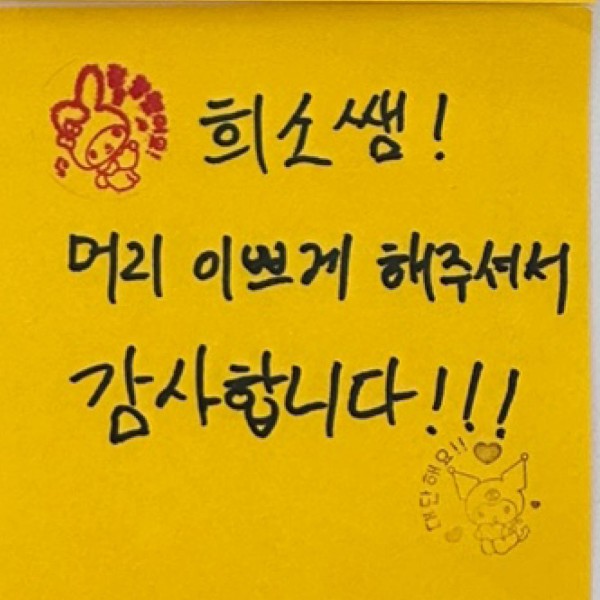 희소쌤!
머리 이쁘게 해주셔서
감사합니다!!!
대단해요!!